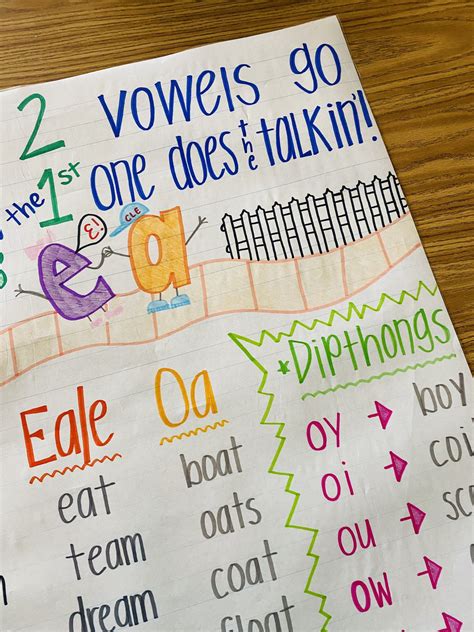 2 vowels go
the 1st one does the talkin'!
E!
CLE
ea
Ea/e
eat
team
dream
Oa
boat
oats
coat
float
*Dipthongs
oy → boy
oi →
ou →
ow →